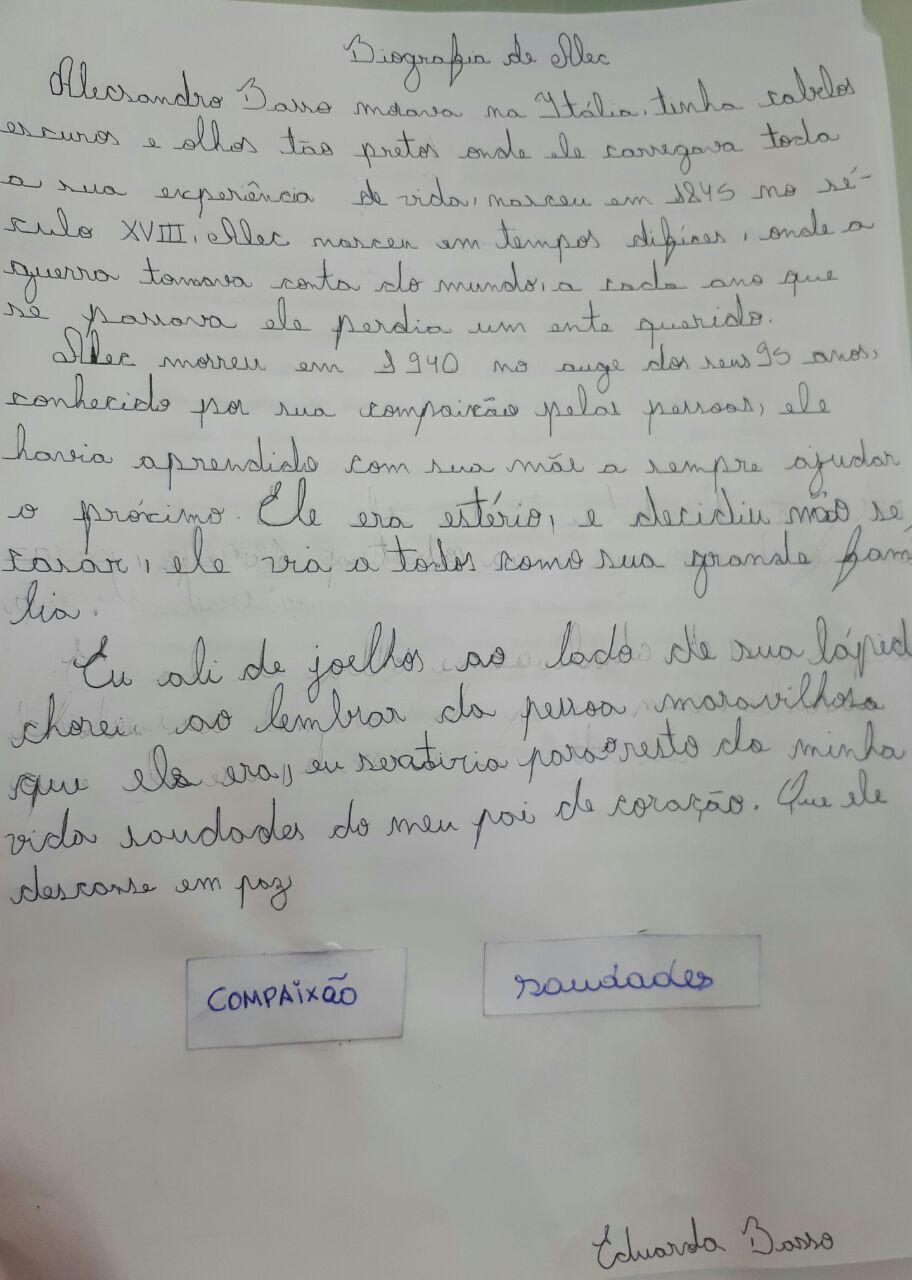 Biografia de Alec
Alecsandro Basso morava na Itália, tinha cabelos
escuros e olhos tão pretos onde ele carregava toda
a sua experiência de vida, nasceu em 1845 no sé-
culo XVIII, Alec nasceu em tempos difíces, onde a
guerra tomava conta do mundo, a cada ano que
se passava ele perdia um ente querido.
Alec morreu em 1940 no auge dos seus 95 anos,
conhecido por sua compaixão pelas pessoas, ele
havia aprendido com sua mãe a sempre ajudar
o próximo. Ele era estério, e decidiu não se
casar, ele via a todos como sua grande fam
lia.
Eu ali de joelhos ao lado de sua lápid
chorei ao lembrar da pessoa maravilhosa
que ele era, eu sentiria para o resto da minha
vida saudades do meu pai de coração. Que ele
descanse em paz
COMPAIXÃO
saudades
Eduarda Basso